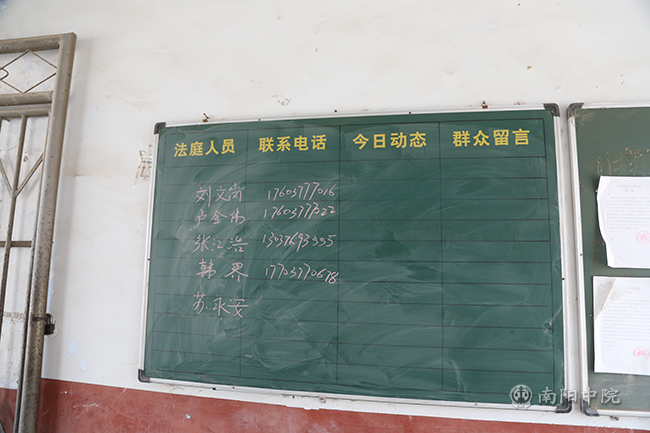 法庭人员 联系电话 今日动态 群众留言
刘文岗 17603777016
卢金伟 17603777022
张江浩 13037693555
韩界 17703770678
苏永安
南阳中院